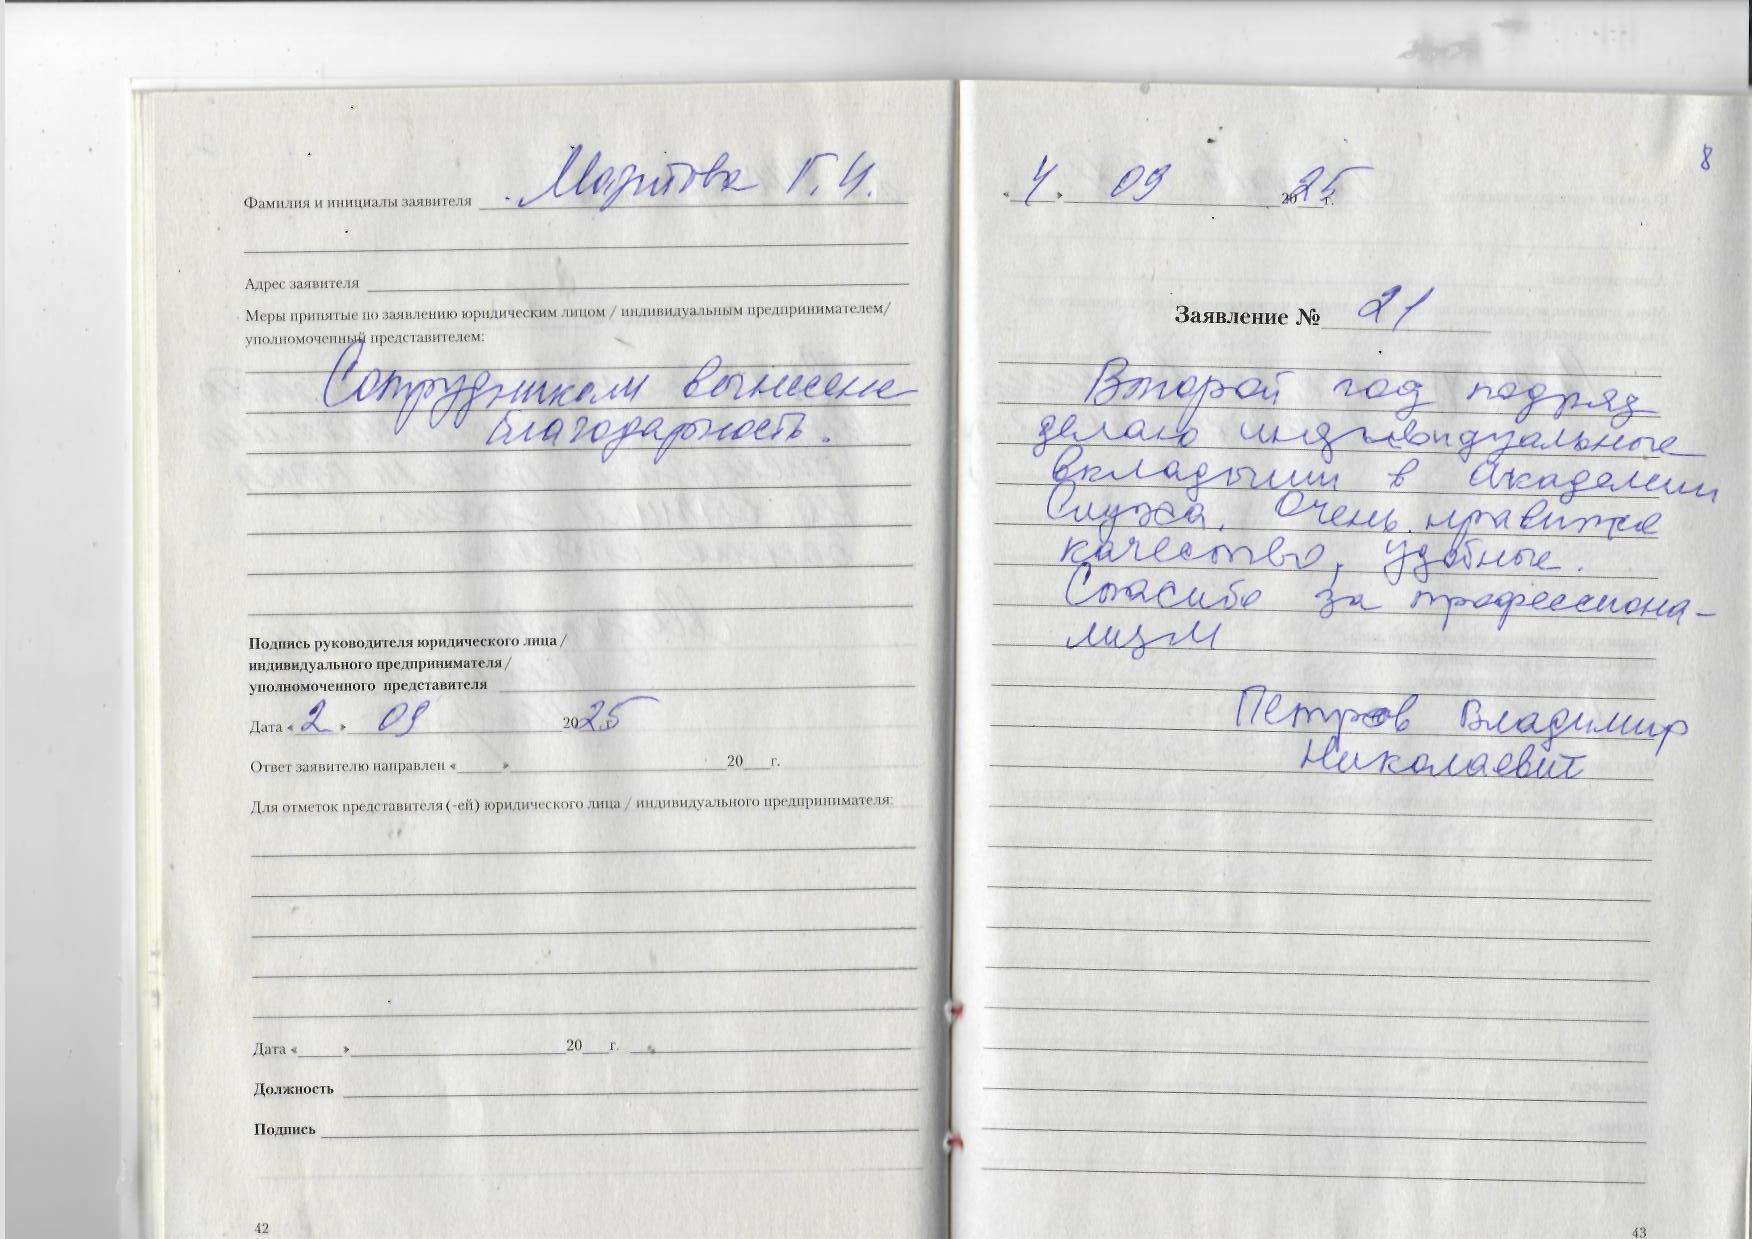 Фамилия и инициалы заявителя Г.И.
Адрес заявителя
Меры принятые по заявлению юридическим лицом / индивидуальным предпринимателем/
уполномоченный представителем:
Сотрудникам вынесена
благодарность.
Подпись руководителя юридического лица/
индивидуального предпринимателя/
уполномоченного представителя
Дата «2» 09 2025 г.
Ответ заявителю направлен «» 20 г.
Для отметок представителя (-ей) юридического лица / индивидуального предпринимателя:
Дата «» 20 г.
Должность
Подпись
42
8
«4» 09 2025 г.
Заявление № 21
Второй год подряд
делаю индивидуальные
вкладыши в Академии
Слуха. Очень нравится
качество, удобные.
Спасибо за профессиона-
лизм
Петров Владимир
Николаевич
43